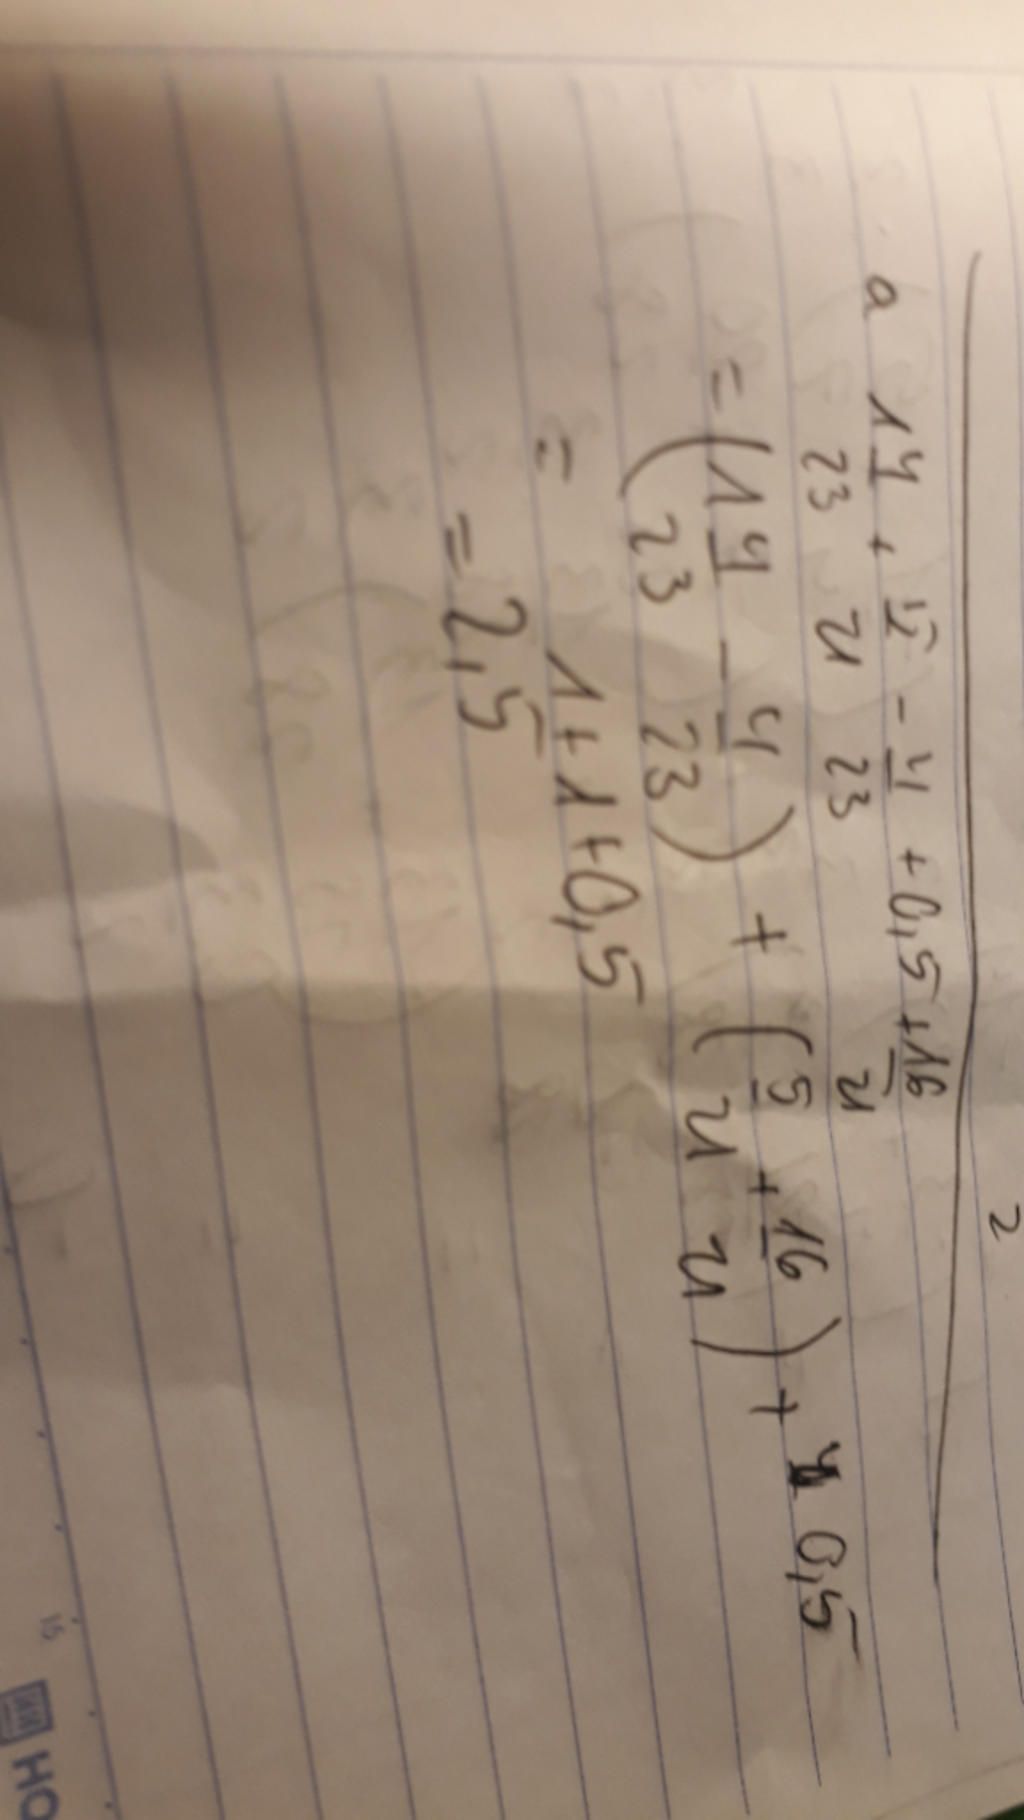 2
a 1 4/23 + 5/21 - 4/23 + 0,5 + 16/21
= (1 4/23 - 4/23) + (5/21 + 16/21) + 0,5
= 1 + 1 + 0,5
= 2,5
15
HO